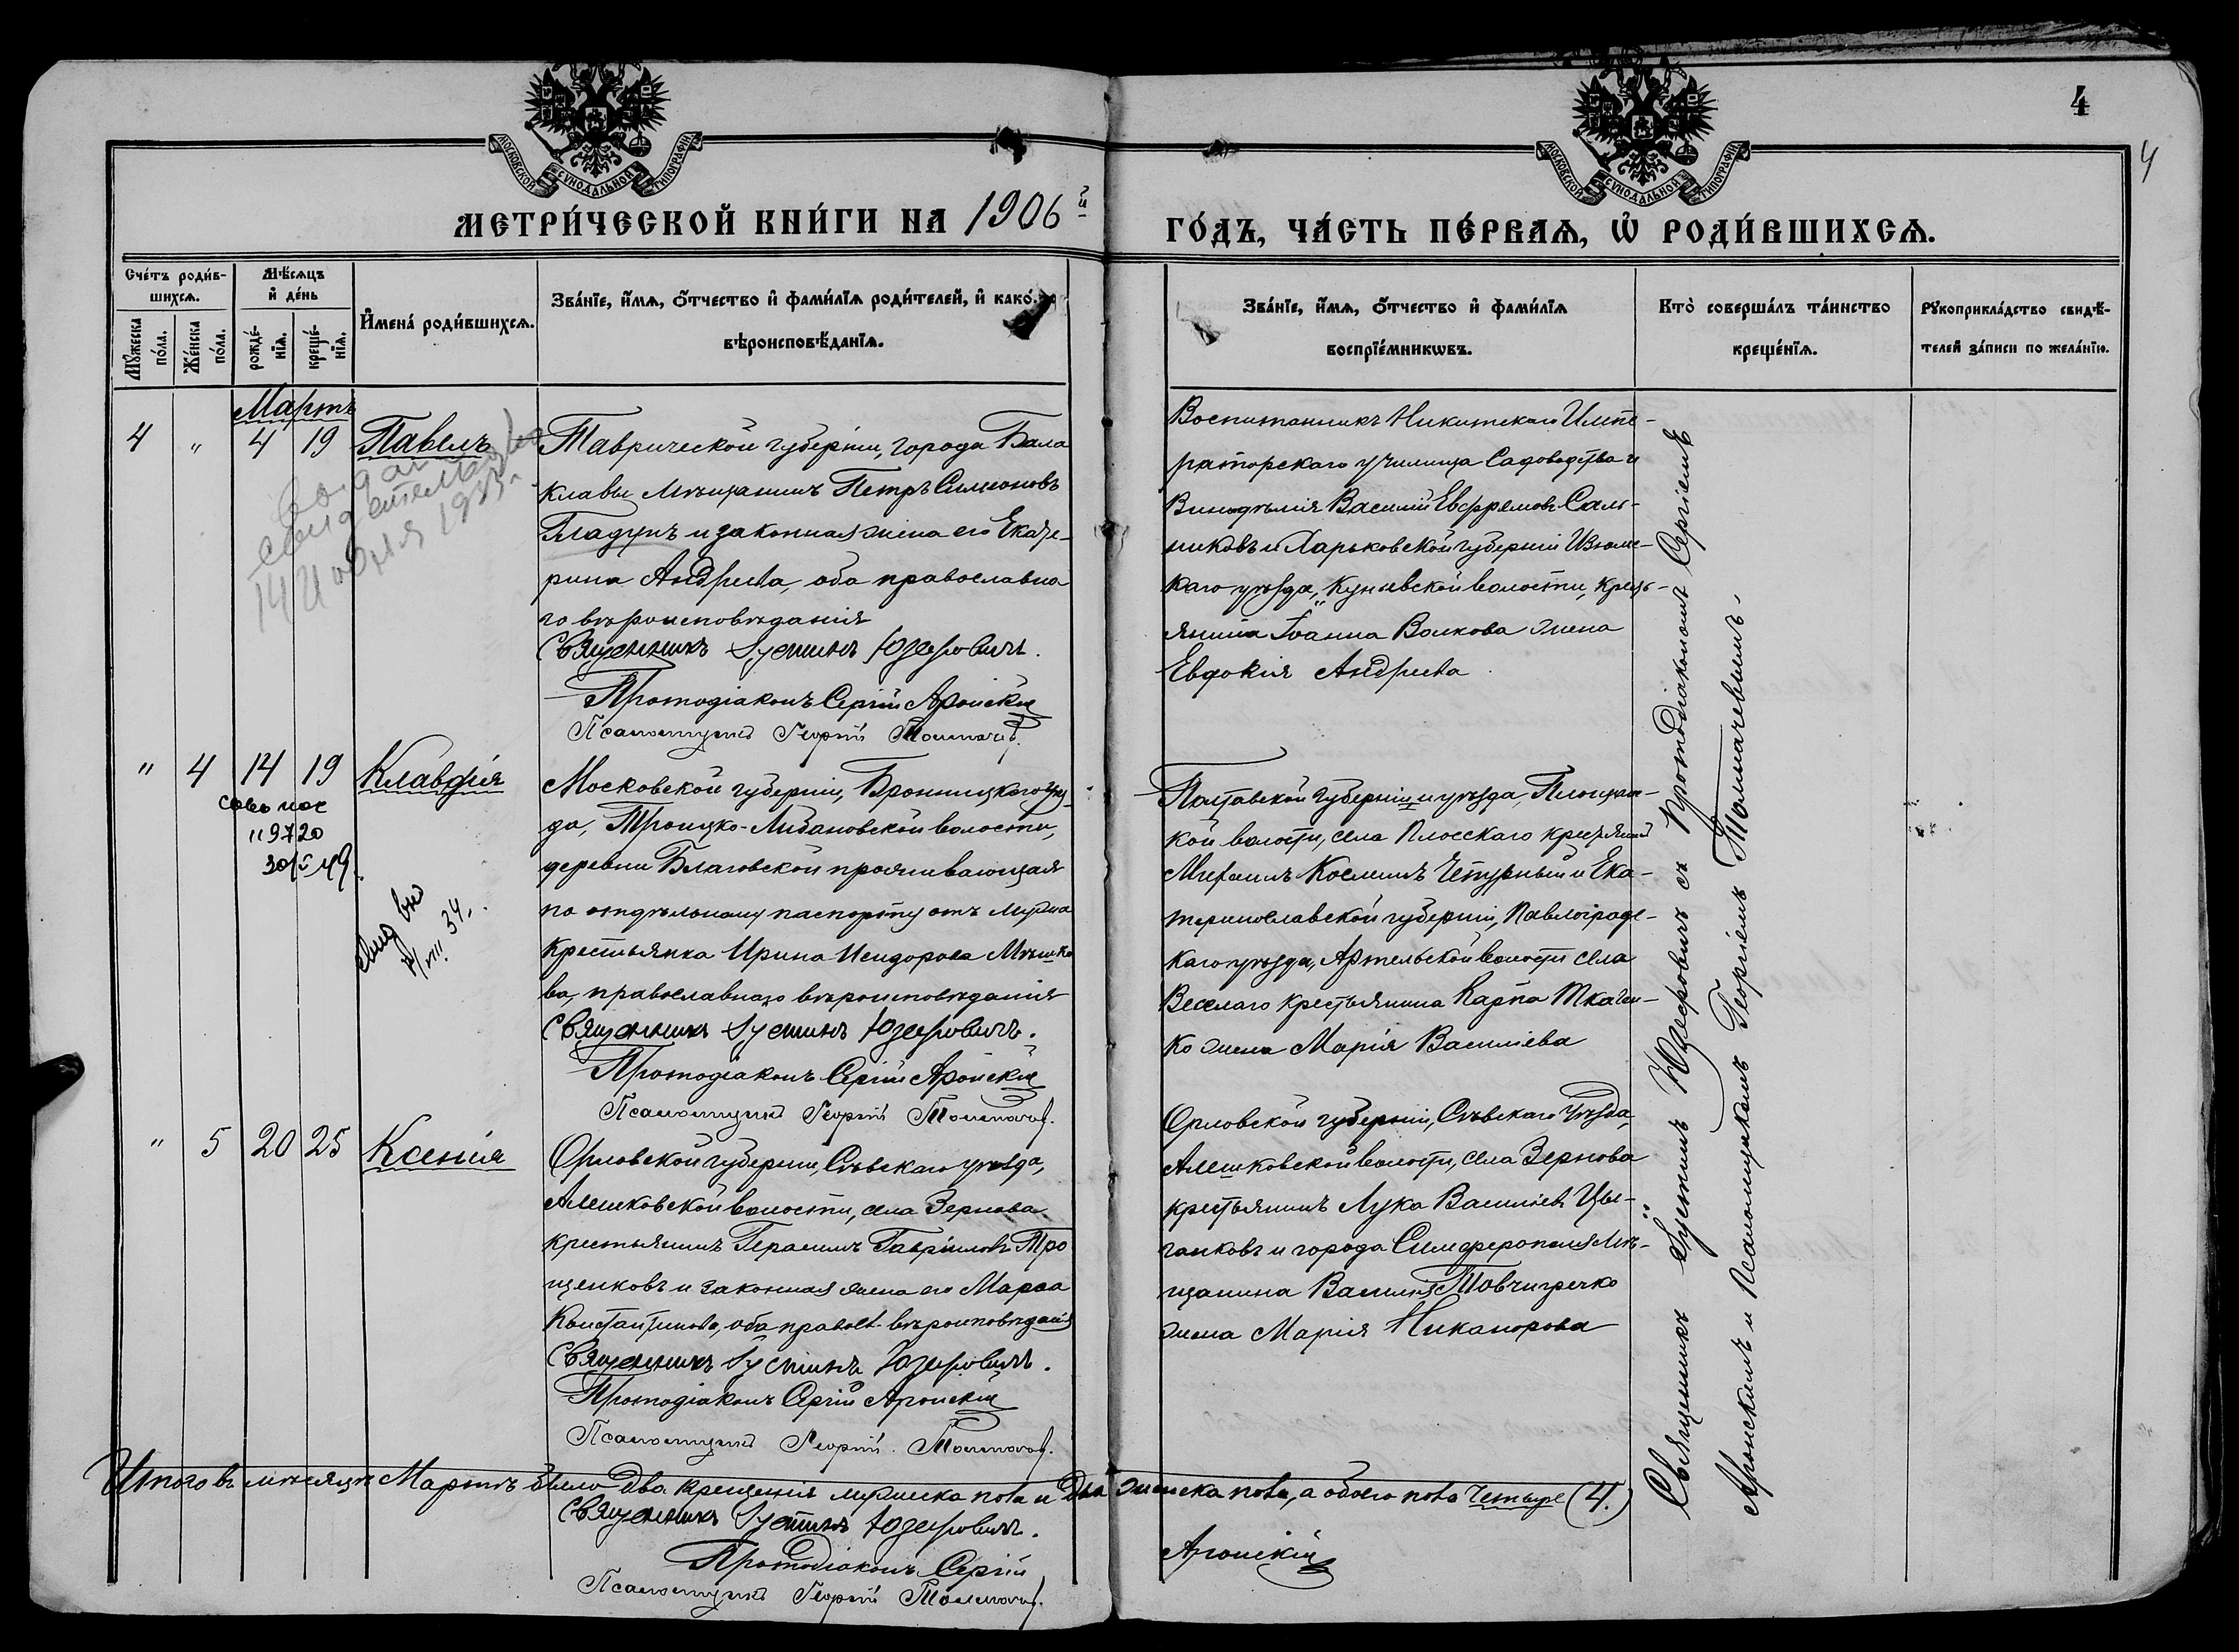 4
4
МОСКОВСКОЙ СѴНОДАЛЬНОЙ ТИПОГРАФІИ
МОСКОВСКОЙ СѴНОДАЛЬНОЙ ТИПОГРАФІИ
МЕТРИ́ЧЕСКОЙ КНИ́ГИ НА 1906й
ГО́ДЪ, ЧА́СТЬ ПЕ́РВАѦ, Ѡ҆ РОДИ́ВШИХСѦ.
Сче́тъ роди́в-
шихсѧ.
Мꙋ́жеска
по́ла.
Же́нска
по́ла.
Мѣ́сѧцъ
и҆ де́нь
рожде́-
нїѧ.
креще́-
нїѧ.
И҆мена̀ роди́вшихсѧ.
Зва́нїе, и҆́мѧ, ѻ҆́тчество и҆ фами́лїѧ роди́телей, и҆ како́
вѣроисповѣ́данїѧ.
Зва́нїе, и҆́мѧ, ѻ҆́тчество и҆ фами́лїѧ
воспрїе́мникѡвъ.
Кто̀ соверша́лъ та́инство
креще́нїѧ.
Рꙋкоприкла́дство свидѣ́-
телей за́писи по жела́нїю.
Мартъ
4 " 4 19 Павелъ
Таврической губерніи, города Бала
клавы мѣщанинъ Петръ Симеоновъ
Гладунъ и законная жена его Екате-
рина Андреева, оба православна
го вѣроисповѣданія
Священникъ Іустинъ Юзефовичъ.
Протодіаконъ Сергій Аронскій
Псаломщикъ Георгій Толмачевъ.
Воспитанникъ Никитскаго Импе-
раторскаго училища Садоводства и
Винодѣлія Василій Евфремовъ Саль-
никовъ и Харьковской губерніи Изюмс-
каго уѣзда, Куньевской волости, кресть-
янина Іоанна Волкова жена
Евдокія Андреева
свидетельство
14
" 4 14 19 Клавдія
119720
49
34.
Московской губерніи, Бронницкаго уѣз-
да, Троицко-Лобановской волости,
деревни Благовской проживающая
по отдѣльному паспорту отъ мужа
крестьянка Ирина Исидорова Мѣшко
ва, православнаго вѣроисповѣданія
Священникъ Іустинъ Юзефовичъ.
Протодіаконъ Сергій Аронскій
Псаломщикъ Георгій Толмачевъ.
Полтавской губерніи и уѣзда,
кой волости, села Плосскаго крестьянинъ
Михаилъ Косминъ Чепурный и Ека-
теринославской губерніи, Павлоградс-
каго уѣзда, Артельской волости села
Веселаго крестьянина Карпа Ткачен-
ко жена Марія Василіева
" 5 20 25 Ксенія
Орловской губерніи, Сѣвскаго уѣзда,
Алешковской волости, села Зернова
крестьянинъ Герасимъ Гавріиловъ Тро
щенковъ и законная жена его Марѳа
Константинова, оба правосл. вѣроисповѣданія
Священникъ Іустинъ Юзефовичъ.
Протодіаконъ Сергій Аронскій
Псаломщикъ Георгій Толмачевъ.
Орловской губерніи, Сѣвскаго уѣзда,
Алешковской волости, села Зернова
крестьянинъ Лука Василіевъ Цы-
ганковъ и города Симферополя мѣ-
щанина Василія Товчигречко
жена Марія Никанорова
Священникъ Іустинъ Юзефовичъ съ Протодіакономъ Сергіемъ
Аронскимъ и Псаломщикомъ Георгіемъ Толмачевымъ.
Итого въ мѣсяцѣ Мартѣ было два крещенія мужеска пола и два женска пола, а обоего пола четыре (4.)
Священникъ Іустинъ Юзефовичъ.
Протодіаконъ Сергій Аронскій
Псаломщикъ Георгій Толмачевъ.